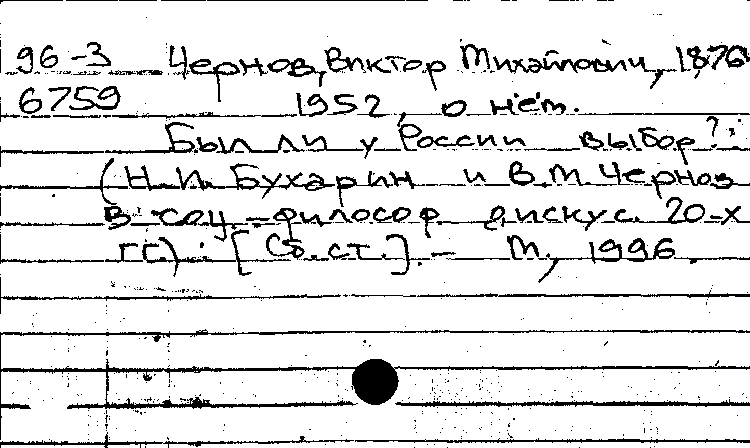 96-3 Чернов, Виктор Михайлович, 1876
6759 1952, о нём.
Был ли у России выбор?:
(Н.И. Бухарин и В.М. Чернов
в соц.-философ. дискус. 20-х
гг.) : [Сб.ст.]. - М., 1996.